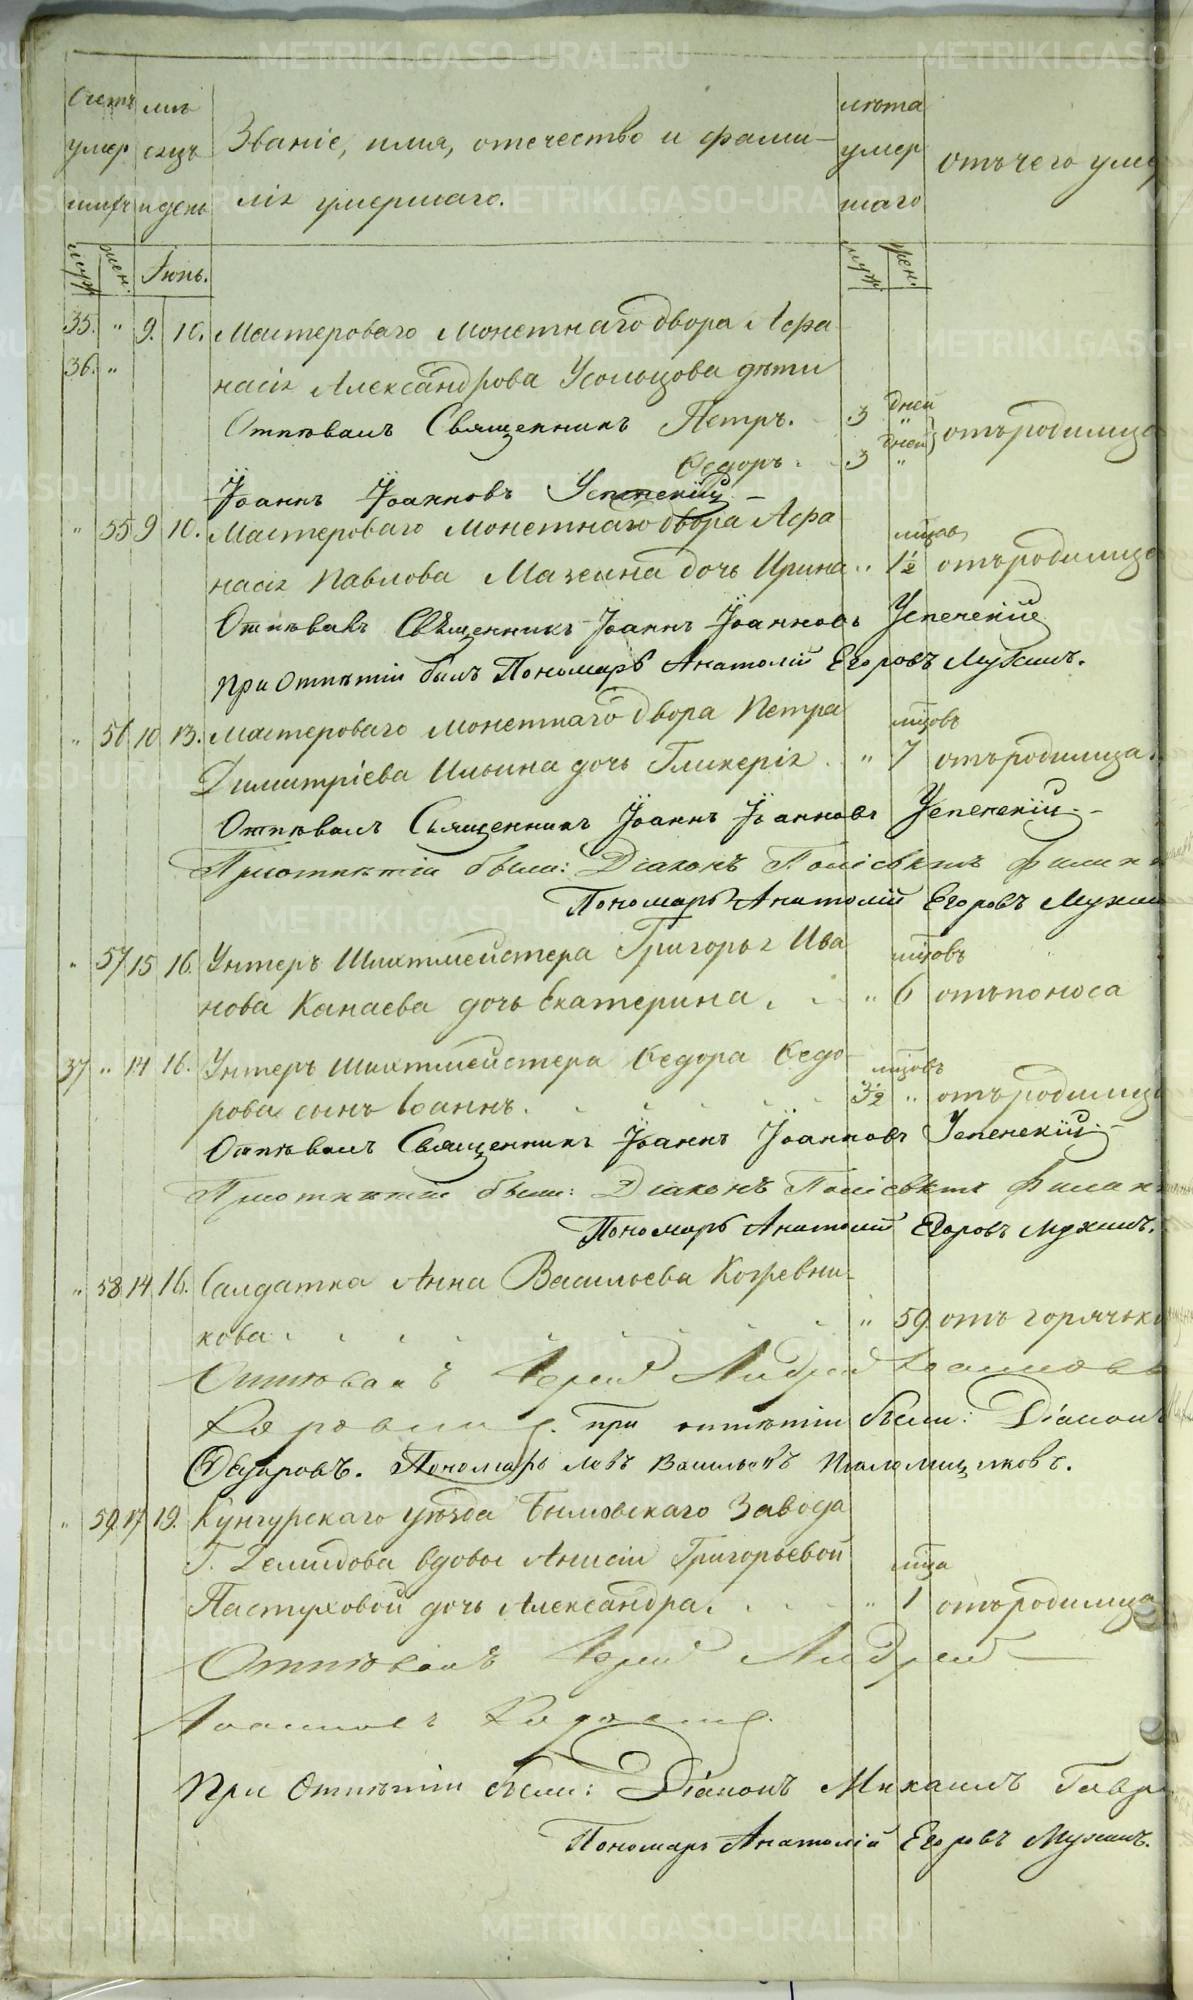 Счетъ умер шихъ
мѣ сяцъ и день
Званіе, имя, отечество и фами-
лія умершаго.
лѣта умер шаго
отъ чего умер
муж. жен. Іюнь. муж. жен.
35. " 9. 10. Мастероваго Монетнаго двора Афа
36. " насія Александрова Усольцова дѣти
Отпѣвалъ Священникъ Петръ. 3 дней " отъ родимца
Ѳедоръ. 3 дней "
Іоаннъ Іоанновъ Успенскій
" 55 9 10. Мастероваго Монетнаго двора Афа мѣсяцовъ
насія Павлова Мазеина дочь Ирина " 1½ отъ родимца
Отпѣвалъ Священникъ Іоаннъ Іоанновъ Успенскій
При Отпѣтіи былъ Пономарь Анатолій Егоровъ Мухинъ.
" 56 10 13. Мастероваго Монетнаго двора Петра мѣсяцовъ
Димитріева Ильина дочь Гликерія " 7 отъ родимца.
Отпѣвалъ Священникъ Іоаннъ Іоанновъ Успенскій
При отпѣтіи были: Діаконъ Поліевктъ
Пономарь Анатолій Егоровъ Мухин
" 57 15 16. Унтеръ Шихтмейстера Григорья Ива мѣсяцовъ
нова Канаева дочь Екатерина. " 6 отъ поноса
37 " 14 16. Унтеръ Шихтмейстера Ѳедора Ѳедо- мѣсяцовъ
рова сынъ Іоаннъ. 3½ " отъ родимца
Отпѣвалъ Священникъ Іоаннъ Іоанновъ Успенскій
При отпѣтіи были: Діаконъ Поліевктъ
Пономарь Анатолій Егоровъ Мухинъ.
" 58 14 16. Салдатка Анна Васильева Кожевни-
кова " 59 отъ горячьк
Отпѣвалъ Іерей Андрей Іоанновъ
при отпѣтіи были: Діаконъ
Пономарь Левъ Васильевъ
" 59. 17 19. Кунгурскаго уѣзда Бымовскаго Завода
Г. Демидова вдовы Анисіи Григорьевой мѣсяца
Пастуховой дочь Александра. " 1 отъ родимца
Отпѣвалъ Іерей Андрей
Іоанновъ
При Отпѣтіи были: Діаконъ Михаилъ Гавр
Пономарь Анатолій Егоровъ Мухинъ.